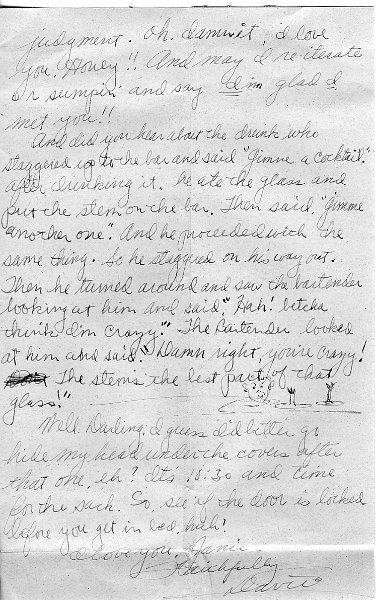 judgment. Oh, damnit, I love
you, Honey!! And may I re-iterate
or sumpin' and say I'm glad I
met you!!
And did you hear about the drunk who
staggered up to the bar and said "Gimme a cocktail."
After drinking it, he ate the glass and
put the stem on the bar. Then said, "Gimme
another one". And he proceeded with the
same thing. So he staggered on his way out.
Then he turned around and saw the bartender
looking at him and said, "Hah! betcha
think I'm crazy." The Bartender looked
at him and said "Damn right, you're crazy!
The stem's the best part of that
glass!"
Well Darling, I guess I'd better go
hide my head under the covers after
that one, eh? It's 10:30 and time
for the sack. So, see if the door is locked
before you get in bed, huh!
I love you, Janie
Faithfully